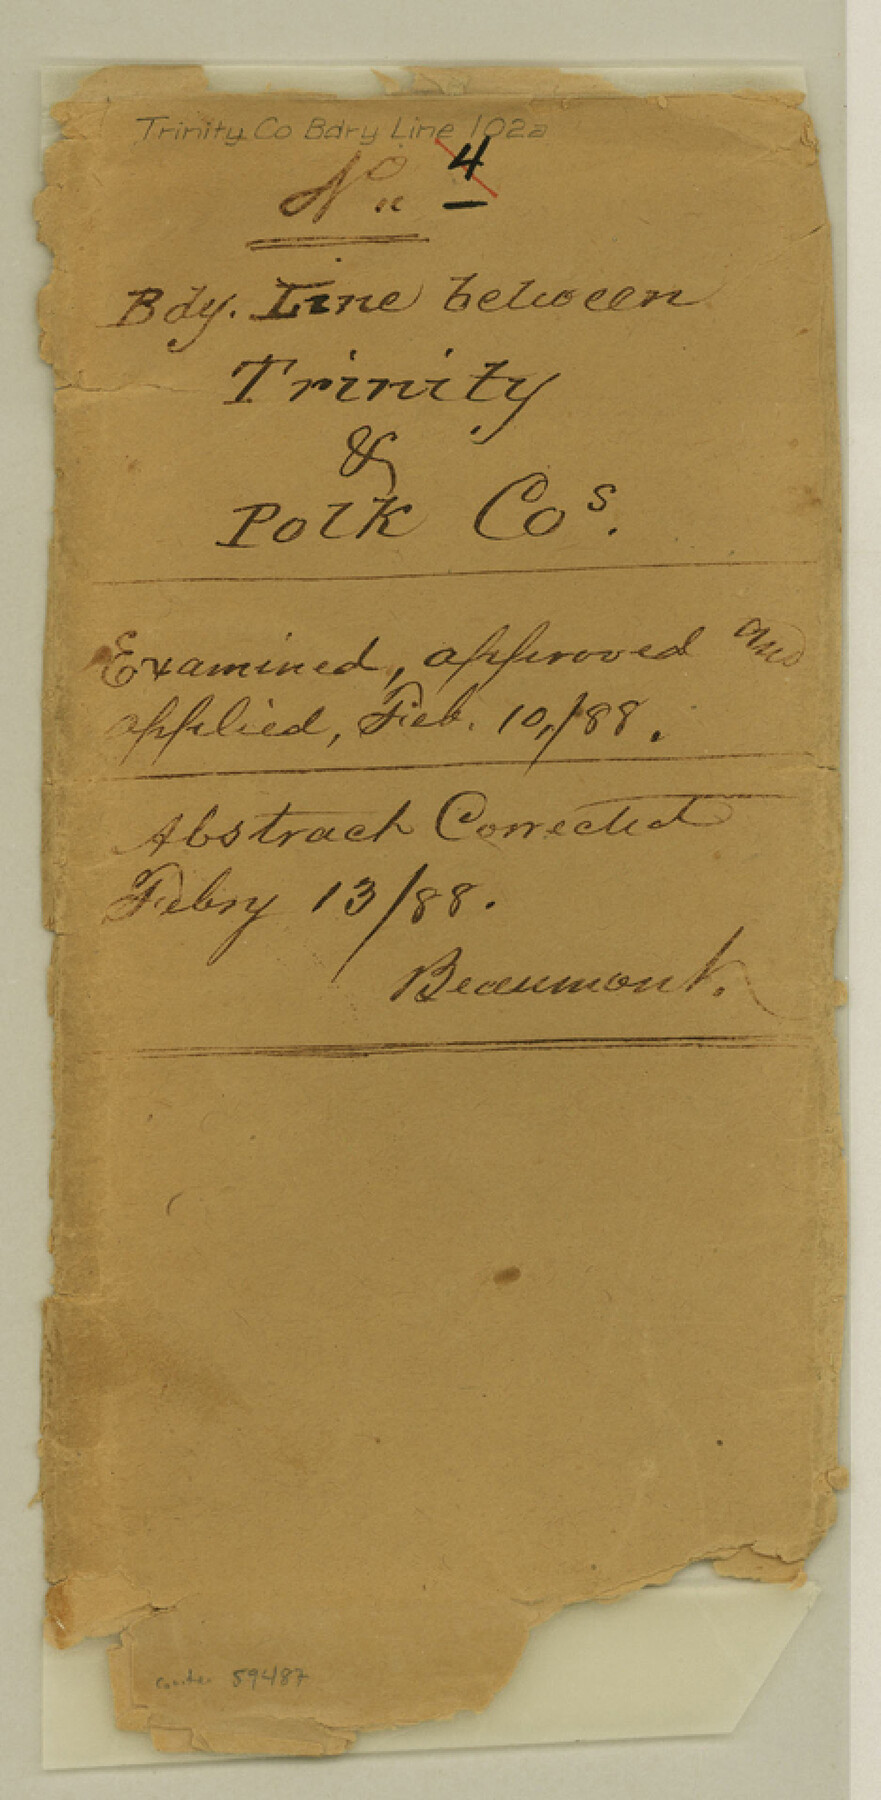 Trinity Co Bdry Line 102a
No. 4
Bdy. Line between
Trinity
&
Polk Cos.
Examined, approved and
applied, Feb. 10,/88.
Abstract Corrected
Febry 13/88.
Beaumont.
counter 59487